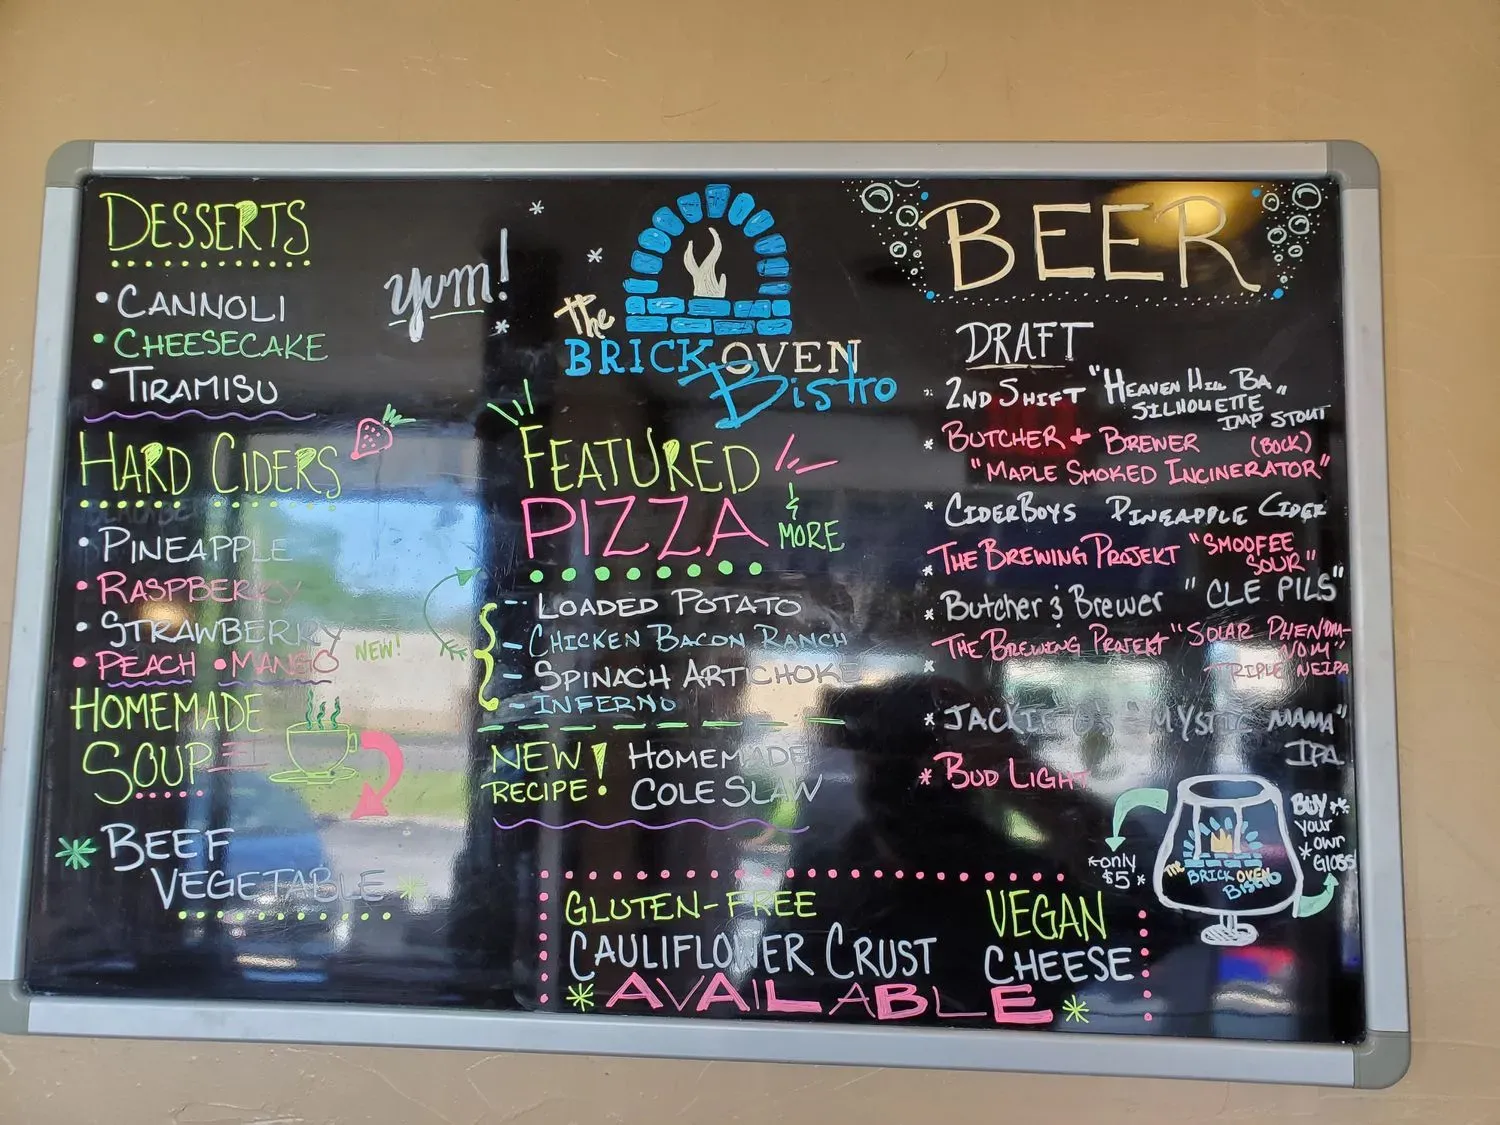 DESSERTS
• CANNOLI
• CHEESECAKE
• TIRAMISU
yum!
HARD CIDERS
• PINEAPPLE
• RASPBERRY
• STRAWBERRY
• PEACH • MANGO
NEW!
HOMEMADE
SOUP
* BEEF
VEGETABLE *
the
BRICK OVEN
Bistro
FEATURED
PIZZA
& MORE
- LOADED POTATO
- CHICKEN BACON RANCH
- SPINACH ARTICHOKE
- INFERNO
NEW RECIPE!
HOMEMADE
COLE SLAW
GLUTEN-FREE
CAULIFLOWER CRUST
VEGAN
CHEESE
* AVAILABLE *
BEER
DRAFT
* 2ND SHIFT "HEAVEN HILL BA
SILHOUETTE"
IMP STOUT
* BUTCHER + BREWER (BOCK)
"MAPLE SMOKED INCINERATOR"
* CIDERBOYS PINEAPPLE CIDER
* THE BREWING PROJEKT "SMOOFEE
SOUR"
* Butcher & Brewer "CLE PILS"
* THE BREWING PROJEKT "SOLAR PHENOM-
NOM"
TRIPLE NEIPA
* JACKIE O'S "MYSTIC MAMA"
IPA
* BUD LIGHT
*only
$5*
BUY
your
*own
GlASS
the
BRICK OVEN
Bistro